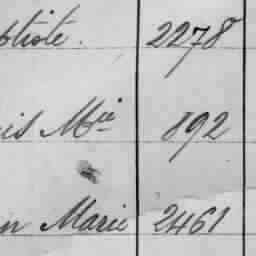 ptiste. 2278
is Mie 892
n Marie 2461